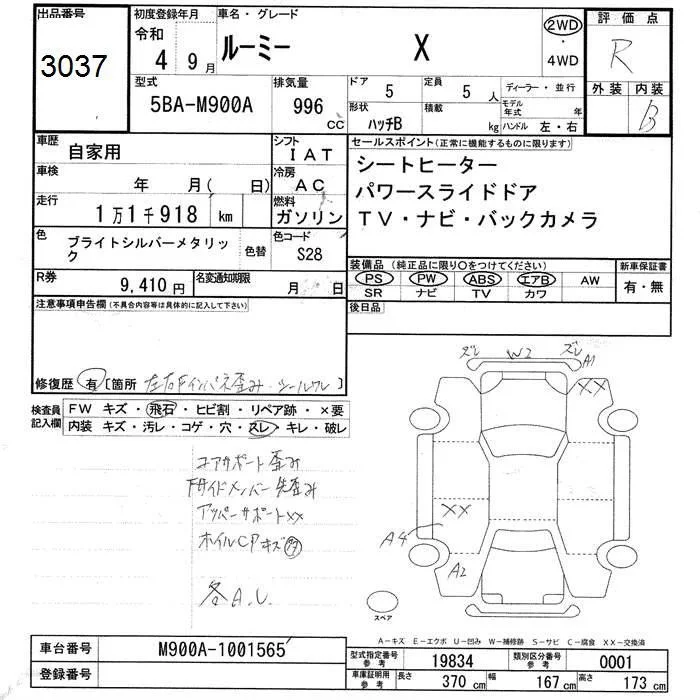 出品番号
3037
初度登録年月
令和
4 9月
車名・グレード
ルーミー X
2WD
・
4WD
評価点
R
外装 内装
B
型式
5BA-M900A
排気量
996
CC
ドア
5
定員
5 人
ディーラー・並行
形状
ハッチB
積載
kg
モデル
年式 年
ハンドル 左・右
車歴
自家用
シフト
IAT
車検
年 月( 日)
冷房
AC
走行
1万1千918 km
燃料
ガソリン
色
ブライトシルバーメタリッ
ク
色替
色コード
S28
R券
9,410円
名変通知期限
月 日
セールスポイント(正常に機能するものに限ります)
シートヒーター
パワースライドドア
TV・ナビ・バックカメラ
装備品 (純正品に限り○をつけてください)
PS PW ABS エアB AW
SR ナビ TV カワ
新車保証書
有・無
後日品
注意事項申告欄(不具合内容等は具体的に記入して下さい)
修復歴 有 [箇所 左右Fインパネ歪み・シールワレ ]
検査員
記入欄
FW キズ・飛石・ヒビ割・リペア跡・×要
内装 キズ・汚レ・コゲ・穴・スレ・キレ・破レ
コアサポート歪み
Fサイドメンバー先歪み
アッパーサポートXX
ホイルCPキズ
各A.U.
ズレ W2 ズレ A1
XX
XX
A4
A2
スペア
A-キズ E-エクボ U-凹み W-補修跡 S-サビ C-腐食 XX-交換済
車台番号
M900A-1001565
登録番号
型式指定番号
参考
19834
類別区分番号
参考
0001
車庫証明用
参考
長さ
370 cm
幅
167 cm
高さ
173 cm